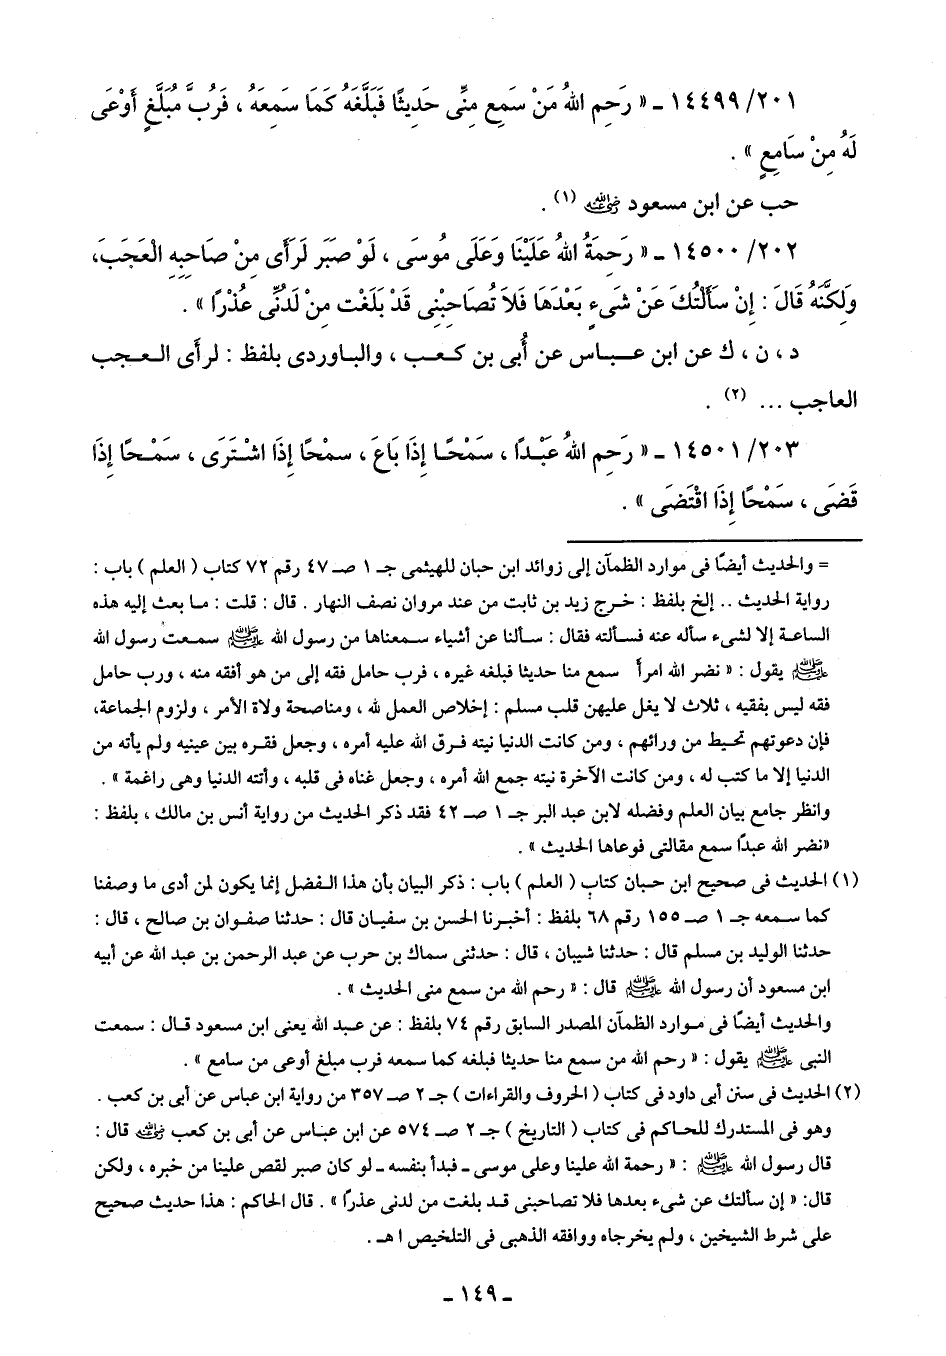 ٢٠١/ ١٤٤٩٩ ـ « رَحِم اللهُ مَنْ سَمِع مِنِّى حَدِيثًا فَبَلَّغَهُ كَمَا سَمِعَهُ ، فَرُبَّ مُبَلَّغٍ أَوْعَى
لَهُ مِنْ سَامِعٍ » .
حب عن ابن مسعود ﵁ (١) .
٢٠٢/ ١٤٥٠٠ ـ « رَحمَةُ اللهُ عَلَيْنَا وَعَلَى مُوسَى ، لَوْ صَبَر لَرَأَى مِنْ صَاحِبِهِ الْعَجَبَ،
وَلكِنَّهُ قَالَ : إِنْ سَأَلْتُكَ عَنْ شَىءٍ بَعْدَهَا فَلاَ تُصَاحِبْنِى قَدْ بَلَغْت مِنْ لَدُنِّى عُذْرًا » .
د ، ن ، ك عن ابن عباس عن أُبى بن كعب ، والباوردى بلفظ : لرأى العجب
العاجب ... (٢) .
٢٠٣/ ١٤٥٠١ ـ « رَحِم اللهُ عَبْدًا ، سَمْحًا إِذَا بَاعَ ، سمْحًا إِذَا اشْتَرَى ، سَمْحًا إِذَا
قَضَى ، سَمْحًا إِذَا اقْتَضَى » .
= والحديث أيضًا فى موارد الظمآن إلى زوائد ابن حبان للهيثمى جـ ١ صـ ٤٧ رقم ٧٢ كتاب ( العلم ) باب :
رواية الحديث .. إلخ بلفظ : خرج زيد بن ثابت من عند مروان نصف النهار . قال : قلت : ما بعث إليه هذه
الساعة إلا لشىء سأله عنه فسألته فقال : سألنا عن أشياء سمعناها من رسول الله ﷺ سمعت رسول الله
ﷺ يقول : « نضر الله امرأ سمع منا حديثا فبلغه غيره ، فرب حامل فقه إلى من هو أفقه منه ، ورب حامل
فقه ليس بفقيه ، ثلاث لا يغل عليهن قلب مسلم : إخلاص العمل لله ، ومناصحة ولاة الأمر ، ولزوم الجماعة،
فإن دعوتهم تحيط من ورائهم ، ومن كانت الدنيا نيته فرق الله عليه أمره ، وجعل فقره بين عينيه ولم يأته من
الدنيا إلا ما كتب له ، ومن كانت الآخرة نيته جمع الله أمره ، وجعل غناه فى قلبه ، وأتته الدنيا وهى راغمة » .
وانظر جامع بيان العلم وفضله لابن عبد البر جـ ١ صـ ٤٢ فقد ذكر الحديث من رواية أنس بن مالك ، بلفظ :
«نضر الله عبدًا سمع مقالتى فوعاها الحديث » .
(١) الحديث فى صحيح ابن حبان كتاب ( العلم ) باب : ذكر البيان بأن هذا الفضل إنما يكون لمن أدى ما وصفنا
كما سمعه جـ ١ صـ ١٥٥ رقم ٦٨ بلفظ : أخبرنا الحسن بن سفيان قال : حدثنا صفوان بن صالح ، قال :
حدثنا الوليد بن مسلم قال : حدثنا شيبان ، قال : حدثنى سماك بن حرب عن عبد الرحمن بن عبد الله عن أبيه
ابن مسعود أن رسول الله ﷺ قال : « رحم الله من سمع منى الحديث » .
والحديث أيضًا فى موارد الظمآن المصدر السابق رقم ٧٤ بلفظ : عن عبد الله يعنى ابن مسعود قال : سمعت
النبى ﷺ يقول : « رحم الله من سمع منا حديثا فبلغه كما سمعه فرب مبلغ أوعى من سامع » .
(٢) الحديث فى سنن أبى داود فى كتاب ( الحروف والقراءات ) جـ ٢ صـ ٣٥٧ من رواية ابن عباس عن أبى بن كعب .
وهو فى المستدرك للحاكم فى كتاب ( التاريخ ) جـ ٢ صـ ٥٧٤ عن ابن عباس عن أبى بن كعب ﵁ قال :
قال رسول الله ﷺ : « رحمة الله علينا وعلى موسى ـ فبدأ بنفسه ـ لو كان صبر لقص علينا من خبره ، ولكن
قال: « إن سألتك عن شىء بعدها فلا تصاحبنى قد بلغت من لدنى عذرًا » . قال الحاكم : هذا حديث صحيح
على شرط الشيخين ، ولم يخرجاه ووافقه الذهبى فى التلخيص ا هـ .
ـ ١٤٩ ـ